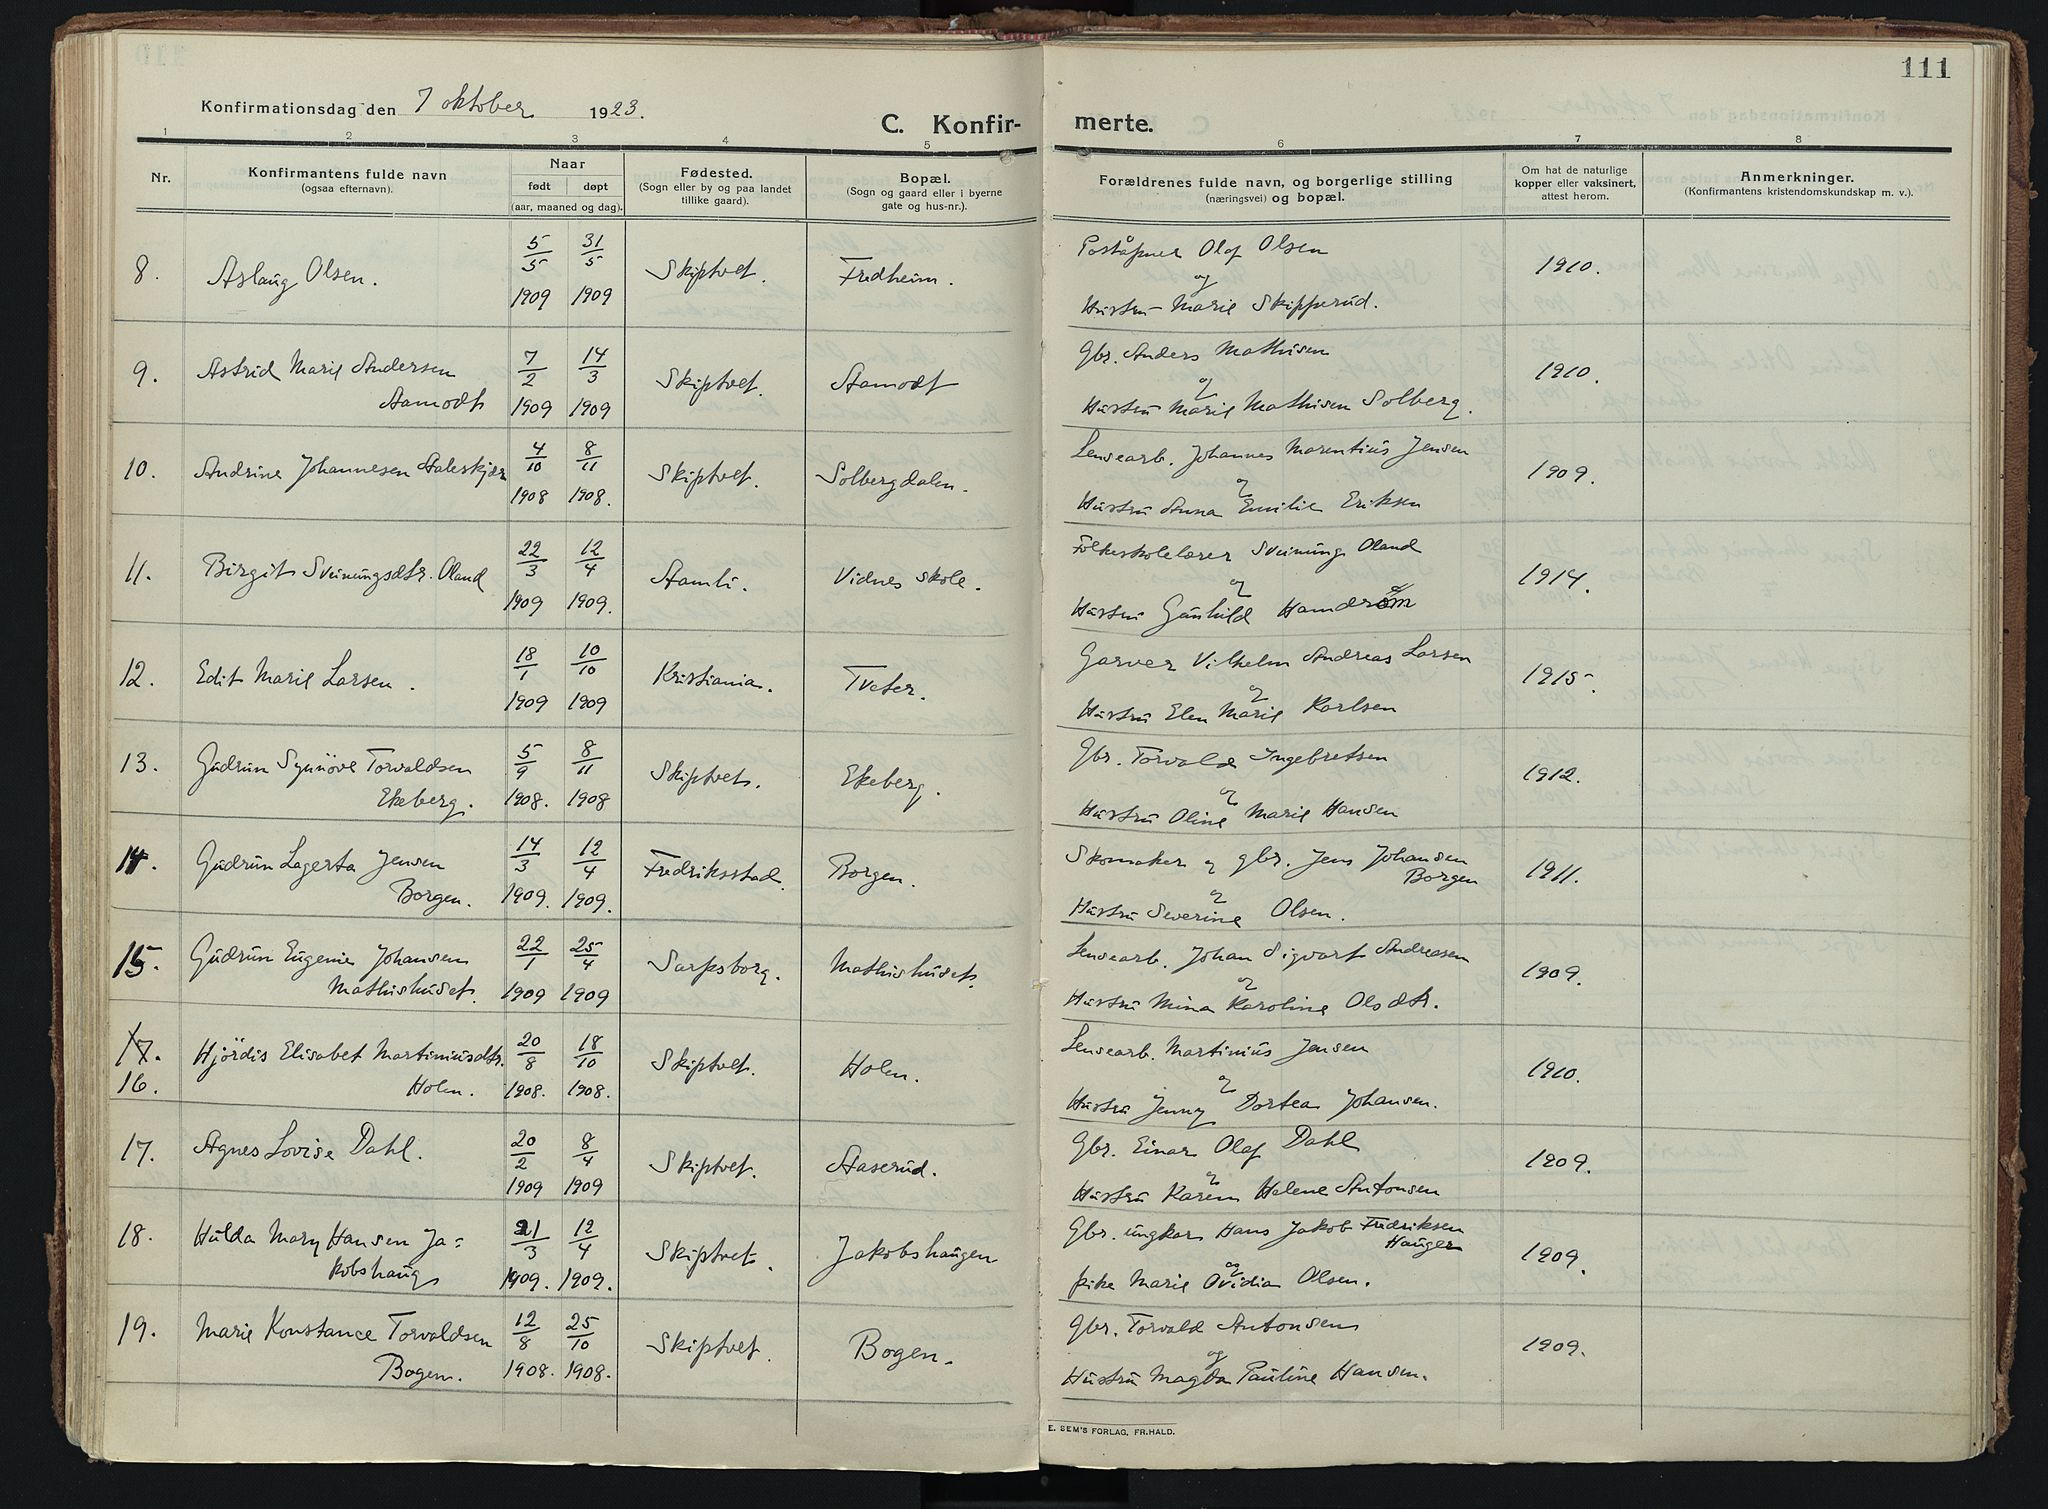 111
Konfirmationsdag den 7 oktober 1923.
C. Konfir-
merte.
1 2 3 4 5 6 7 8
Nr.
Konfirmantens fulde navn
(ogsaa efternavn).
Naar
født døpt
(aar, maaned og dag).
Fødested.
(Sogn eller by og paa landet
tillike gaard).
Bopæl.
(Sogn og gaard eller i byerne
gate og hus-nr.).
Forældrenes fulde navn, og borgerlige stilling
(næringsvei) og bopæl.
Om hat de naturlige
kopper eller vaksinert,
attest herom.
Anmerkninger.
(Konfirmantens kristendomskundskap m. v.).
8. Aslaug Olsen. 5/5 1909 31/5 1909 Skiptvet. Fredheim.
Poståpner Olof Olsen
og
Hustru Marie Skipperud.
1910.
9. Astrid Marie Andersen
Aamodt
7/2 1909 14/3 1909 Skiptvet. Aamodt
Gbr. Anders Mathisen
og
Hustru Marie Mathisen Solberg.
1910.
10. Andrine Johannesen Aaleskjær 4/10 1908 8/11 1908. Skiptvet. Solbergdalen.
Lensearb. Johannes Marentius Jensen
og
Hustru Anna Emilie Eriksen
1909.
11. Birgit Sveinungsdtr. Oland 22/3 1909 12/4 1909. Aamli. Vidnes skole.
Folkeskolelærer Sveinung Oland
og
Hustru Gunhild
1914.
12. Edit Marie Larsen. 18/1 1909 10/10 1909 Kristiania. Tveter.
Garver Vilhelm Andreas Larsen
og
Hustru Elen Marie Karlsen
1915.
13. Gudrun Synnöve Torvaldsen
Ekeberg.
5/9 1908. 8/11 1908 Skiptvet. Ekeberg.
Gbr. Torvald Ingebretsen
og
Hustru Oline Marie Hansen
1912.
14. Gudrun Lagerta Jensen
Borgen.
14/3 1909. 12/4 1909. Fredriksstad. Borgen.
Skomaker og gbr. Jens Johansen
Borgen
og
Hustru Severine Olsen.
1911.
15. Gudrun Eugenie Johansen
Mathishuset.
22/1 1909 25/4 1909 Sarpsborg. Mathishuset.
Lensearb. Johan Sigvart Andreasen
og
Hustru Mina Karoline Olsdtr.
1909.
17. Hjördis Elisabet Martiniusdtr.
16. Holen.
20/8 1908. 18/10 1908. Skiptvet. Holen.
Lensearb. Martinius Jensen
og
Hustru Jenny Dortea Johansen.
1910.
17. Agnes Lovise Dahl. 20/2 1909 8/4 1909 Skiptvet. Aaserud.
Gbr. Einar Olaf Dahl
og
Hustru Karen Helene Antonsen
1909.
18. Hulda Mary Hansen Ja-
kobshaug
21/3 1909. 12/4 1909. Skiptvet. Jakobshaugen
Gbr. ungkar Hans Jakob Fredriksen
Haugen
og
pike Marie Ovidia Olsen.
1909.
19. Marie Konstance Torvaldsen
Bogen.
12/8 1908. 25/10 1908. Skiptvet. Bogen.
Gbr. Torvald Antonsen
og
Hustru Magda Pauline Hansen.
1909.
E. SEM'S FORLAG, FR.HALD.